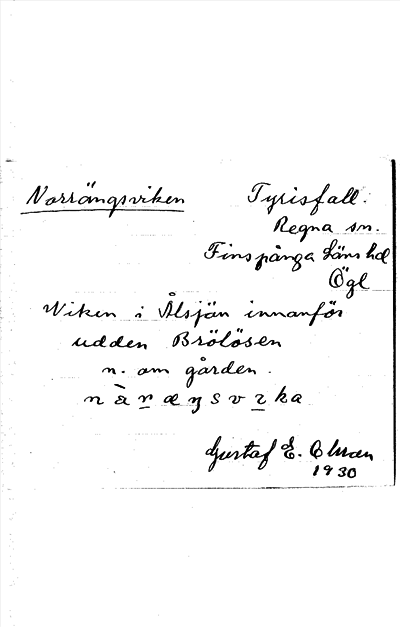 Norrängsviken
Tyrisfall.
Regna sn.
Finspånga läns hd
Ögl
Wiken i Ålsjön innanför
udden Brölösen
n. om gården.
Gustaf E. Olsson
1930